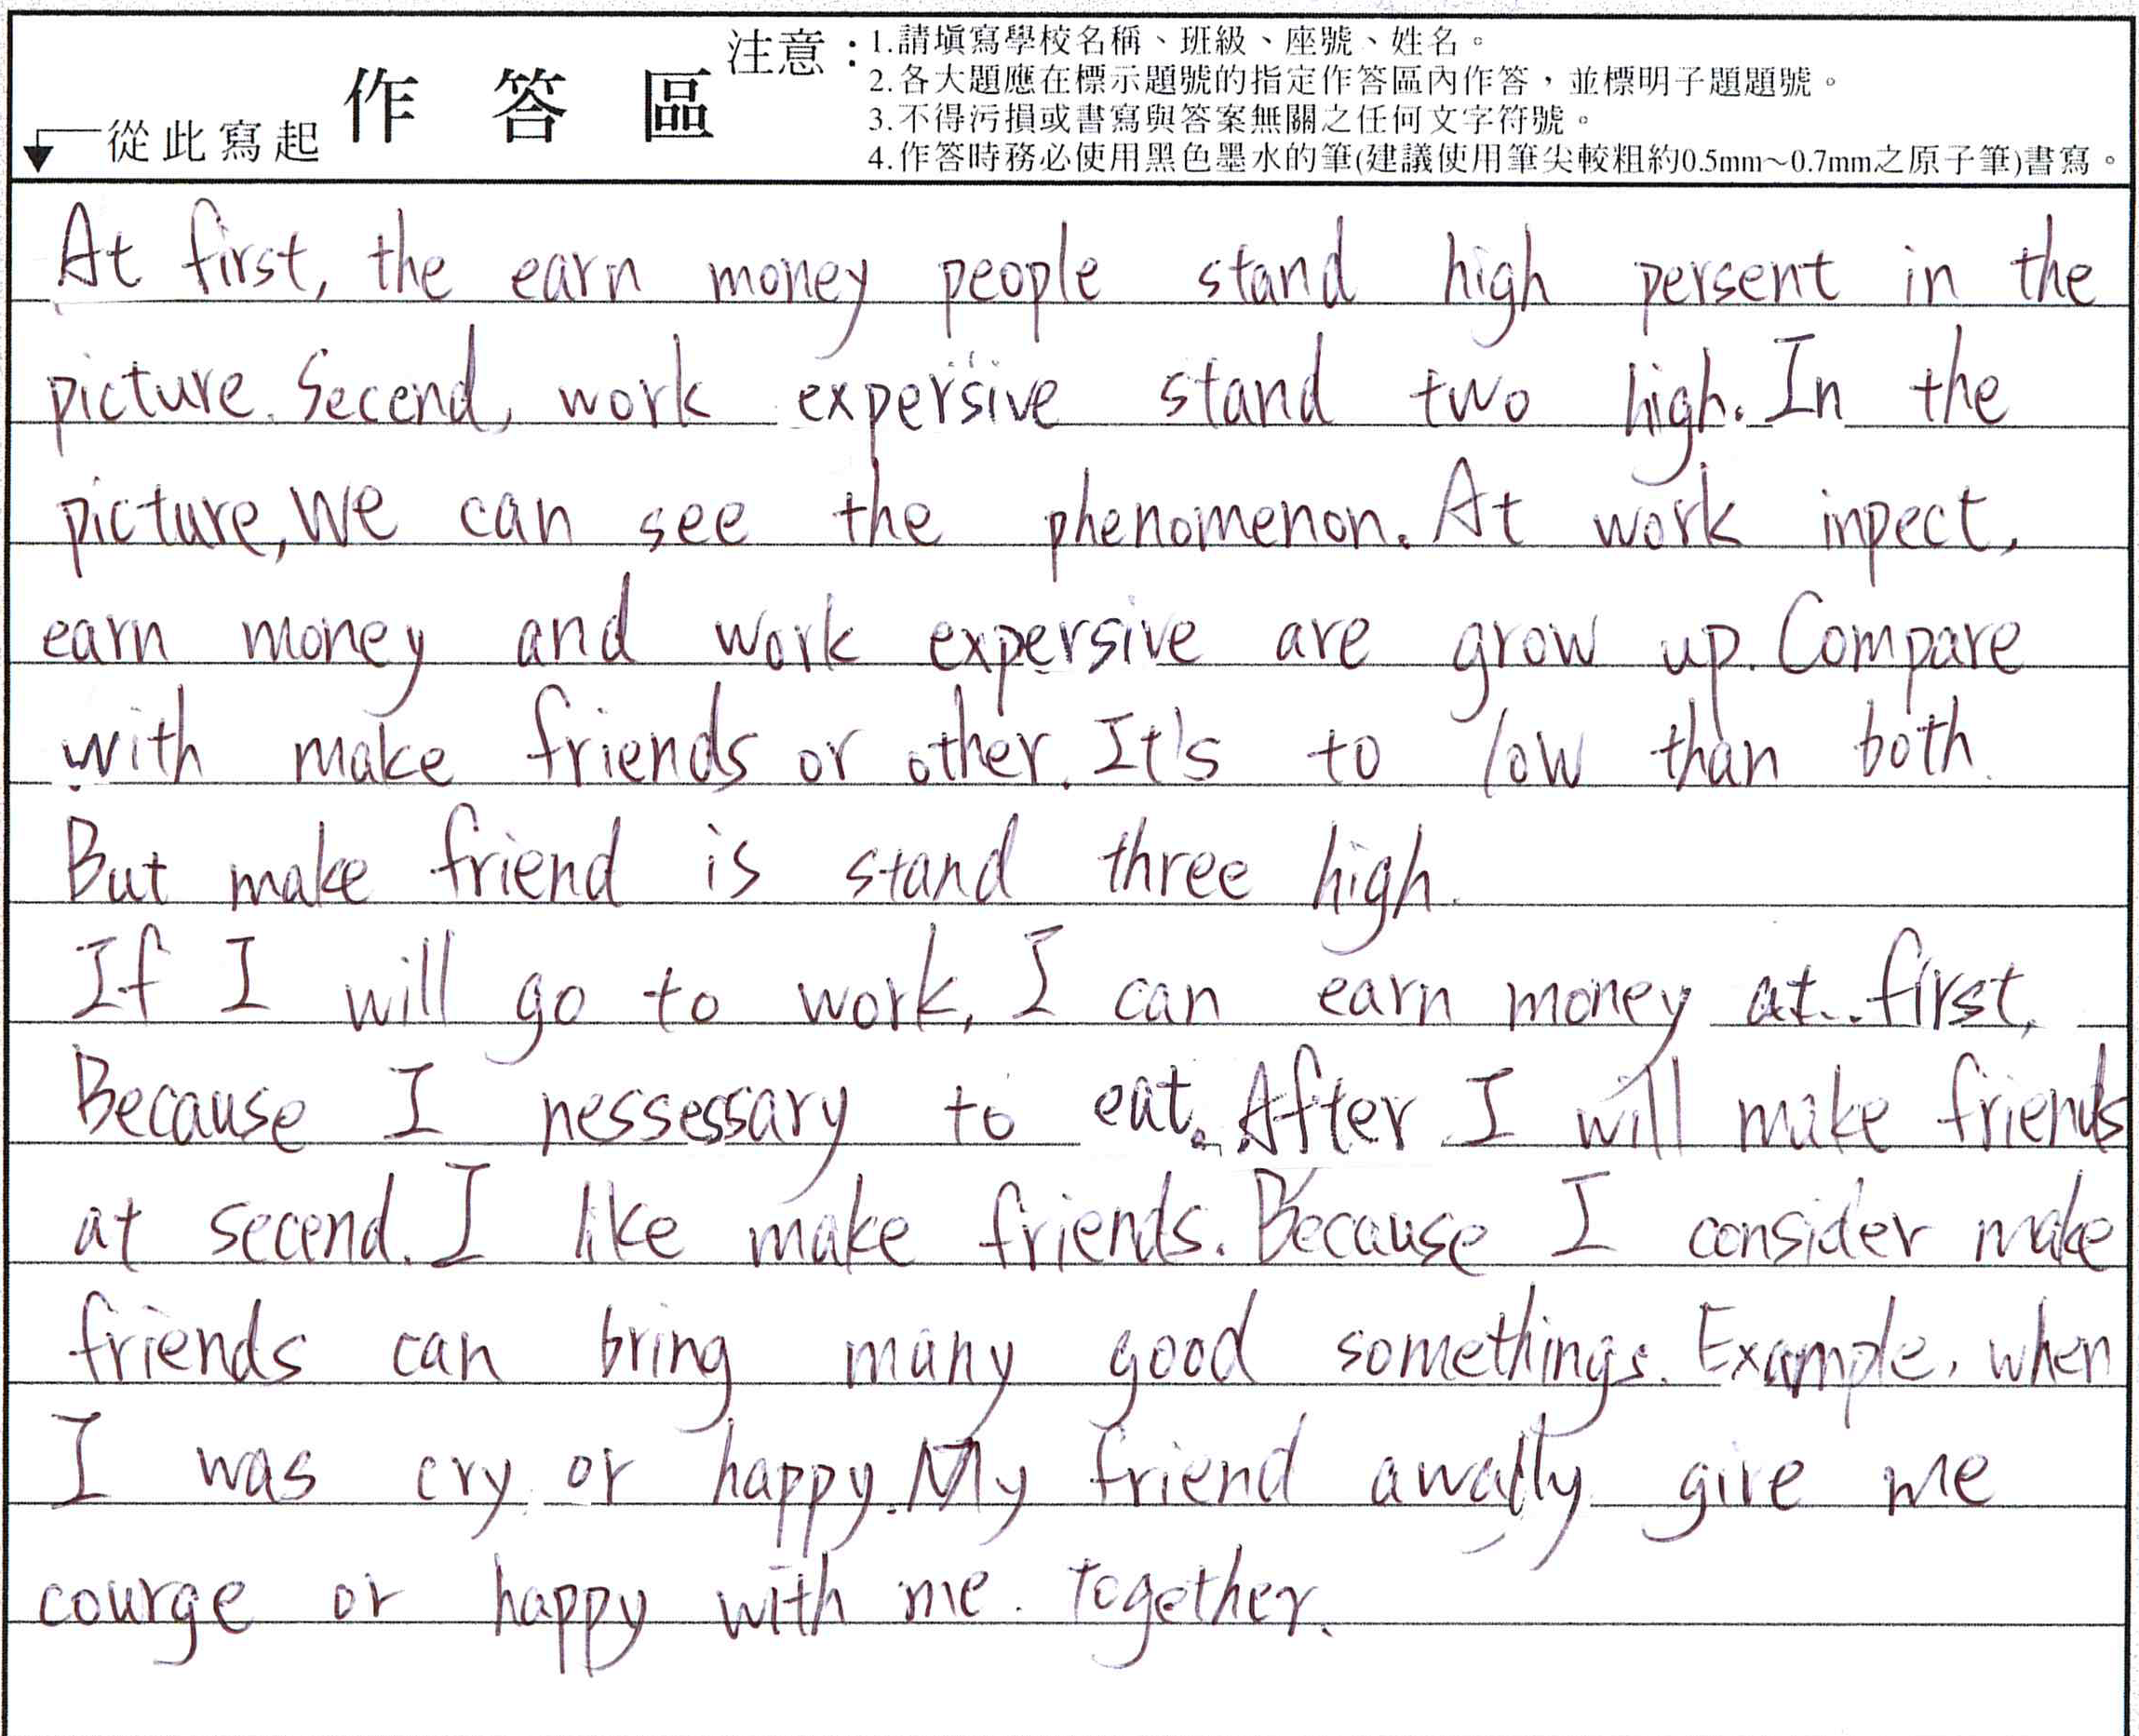 作答區
注意：1.請填寫學校名稱、班級、座號、姓名。
2.各大題應在標示題號的指定作答區內作答，並標明子題題號。
3.不得污損或書寫與答案無關之任何文字符號。
4.作答時務必使用黑色墨水的筆(建議使用筆尖較粗約0.5mm~0.7mm之原子筆)書寫。
從此寫起
At first, the earn money people stand high persent in the
picture. Secend, work expersive stand two high. In the
picture, we can see the phenomenon. At work inpect,
earn money and work expersive are grow up. Compare
with make friends or other. It's to low than both.
But make friend is stand three high.
If I will go to work, I can earn money at first.
Because I nessessary to eat. After I will make friends
at secend. I like make friends. Because I consider make
friends can bring many good somethings. Example, when
I was cry or happy. My friend give me
courge or happy with me together.